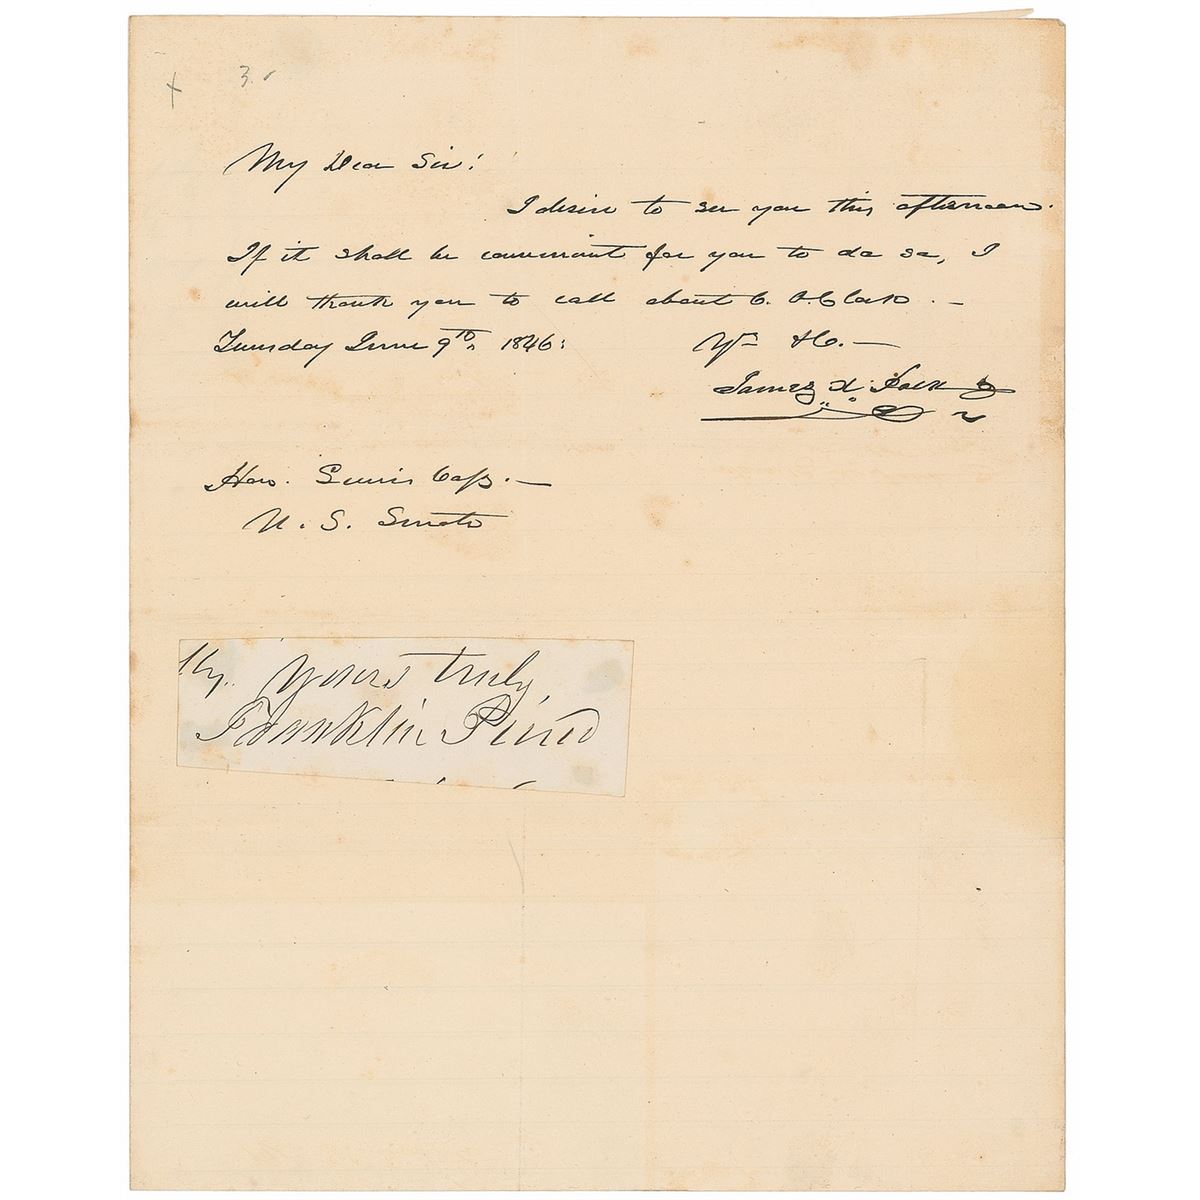 + 3.
My Dear Sir!
I desire to see you this afternoon.
If it shall be convenient for you to do so, I
will thank you to call about 6. O.Clock. -
Tuesday June 9th 1846:
Yr &C. -
James K. Polk
Hon. Lewis Cass. -
U. S. Senate
Yours truly,
Franklin Pierce